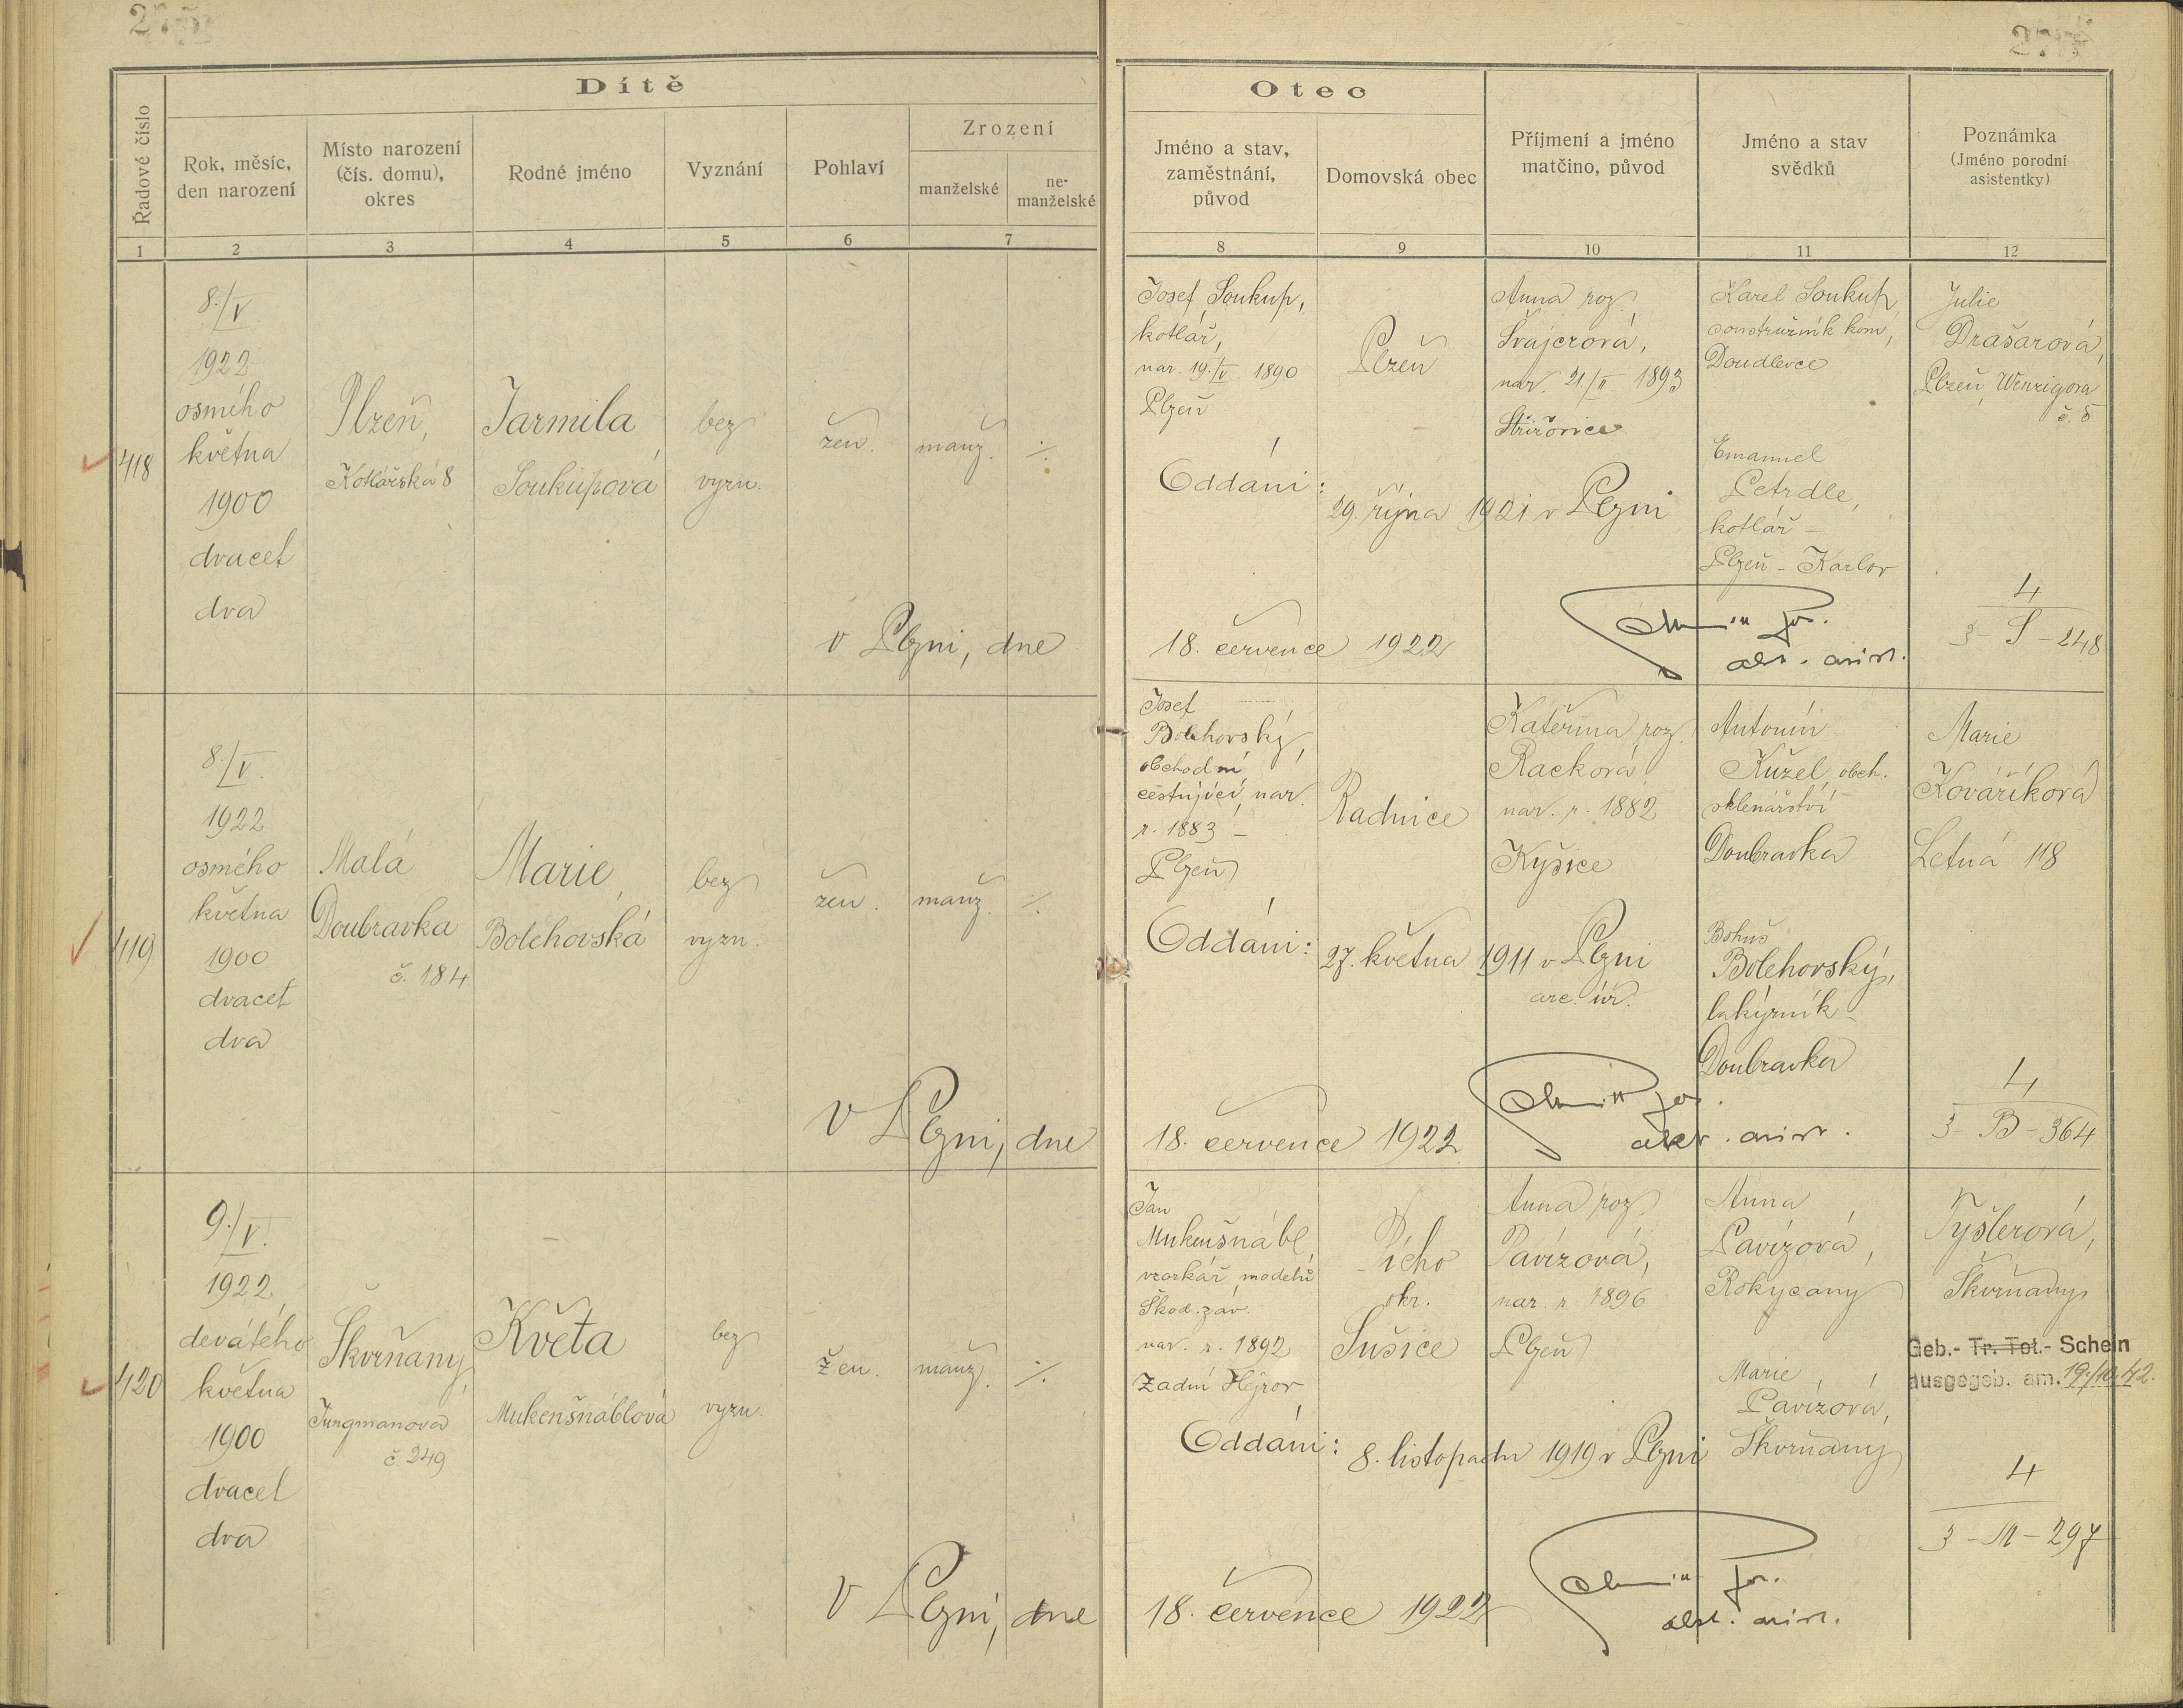 Dítě
Řadové číslo
Rok, měsíc,
den narození
Místo narození
(čís. domu),
okres
Rodné jméno
Vyznání
Pohlaví
Zrození
manželské
ne-
manželské
1
2
3
4
5
6
7
Otec
Jméno a stav,
zaměstnání,
původ
Domovská obec
Příjmení a jméno
matčino, původ
Jméno a stav
svědků
Poznámka
(Jméno porodní
asistentky)
8
9
10
11
12
418
8./V.
1922
osmého
května
1900
dvacet
dva
Plzeň,
Kotlářská 8
Jarmila
Soukupová
bez
vyzn.
žen.
manž.
⁒
v Plzni, dne
Josef Soukup,
kotlář,
nar. 19./V. 1890
Plzeň
Plzeň
Anna roz.
Švajcrová,
nar. 21./II 1893
Střižovice
Karel Soukup,
soustružník kovů,
Doudlevce
Emanuel
Petrdle,
kotlář –
Plzeň – Karlov
Julie
Drašarová,
Plzeň, Wenzigova
č. 8
Oddáni:
29. října 1921 v Plzni
18. července 1922
4
3 – S – 248
419
8./V.
1922
osmého
května
1900
dvacet
dva
Malá
Doubravka
č. 184
Marie
Bolehovská
bez
vyzn.
žen.
manž.
⁒
v Plzni, dne
Josef
Bolehovský,
obchodní
cestující, nar.
r. 1883 –
Plzeň
Radnice
Kateřina roz.
Racková,
nar. r. 1882
Kyšice
Antonín
Kužel, obch.
sklenářství
Doubravka
Bohuš
Bolehovský,
lakýrník –
Doubravka
Marie
Kováříková
Letná 118
Oddáni:
27. května 1911 v Plzni
18. července 1922
4
3 – B – 364
420
9./V.
1922
devátého
května
1900
dvacet
dva
Škvrňany,
Jungmanova
č. 249
Květa
Mukenšnáblová
bez
vyzn.
žen.
manž.
⁒
v Plzni, dne
Jan
Mukenšnábl,
vzorkář modelů
Škod. záv.
nar. r. 1892
Zadní Hejrov
okr.
Sušice
Anna roz.
Pavízová,
nar. r. 1896
Plzeň
Anna
Pavízová,
Rokycany
Marie
Pavízová,
Škvrňany
Tyšlerová,
Škvrňany
Geb.- Tr. Tot.- Schein
ausgegeb. am. 19./10.42.
Oddáni:
8. listopadu 1919 v Plzni
18. července 1922
4
3 – M – 297